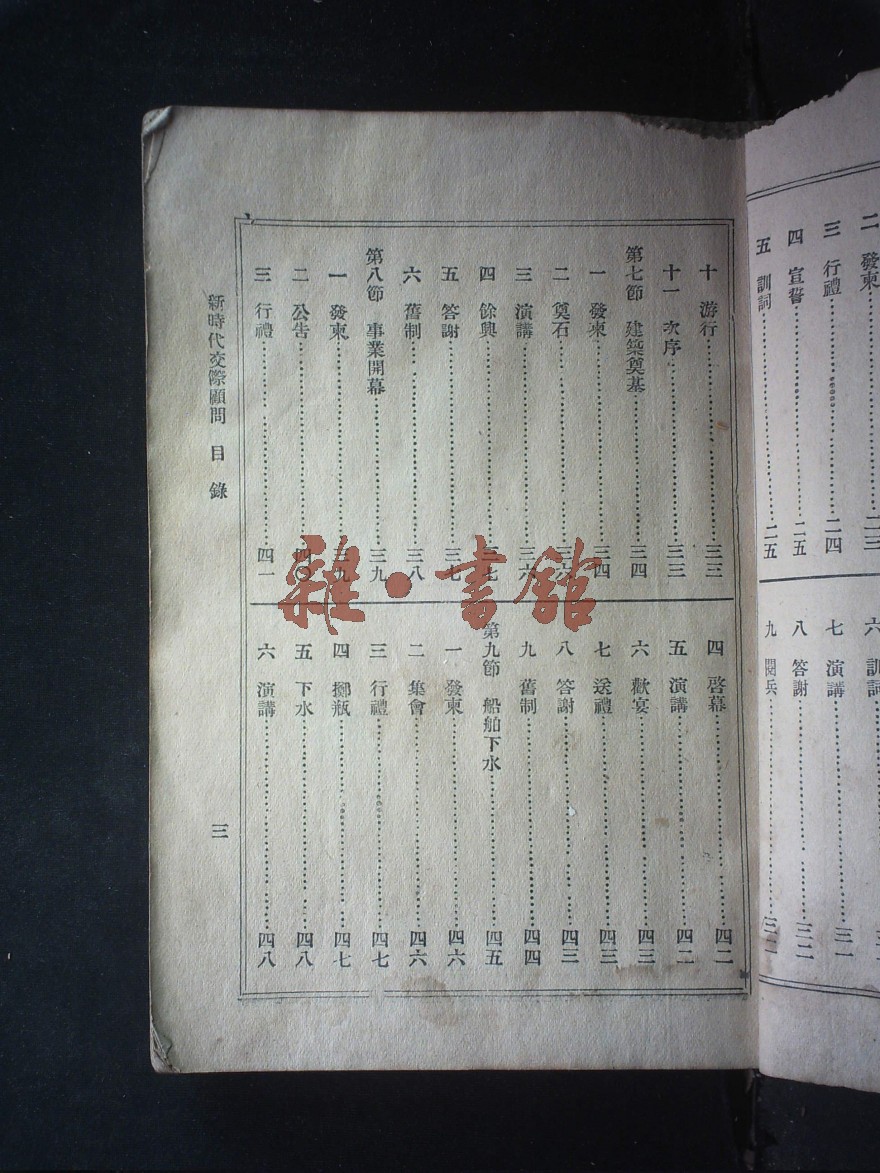 二 發柬……二三
三 行禮……二四
四 宣誓……二五
五 訓詞……二五
六 訓詞
七 演講……三一
八 答謝……三二
九 閱兵……三二
十 游行……三三
十一 次序……三三
第七節 建築奠基……三四
一 發柬……三四
二 奠石……三六
三 演講……三六
四 餘興……三七
五 答謝……三七
六 舊制……三八
第八節 事業開幕……三九
一 發柬……三九
二 公告……四〇
三 行禮……四一
四 啓幕……四二
五 演講……四二
六 歡宴……四三
七 送禮……四三
八 答謝……四三
九 舊制……四四
第九節 船舶下水……四五
一 發柬……四六
二 集會……四六
三 行禮……四七
四 擲瓶……四七
五 下水……四八
六 演講……四八
新時代交際顧問 目錄 三
雜·書館